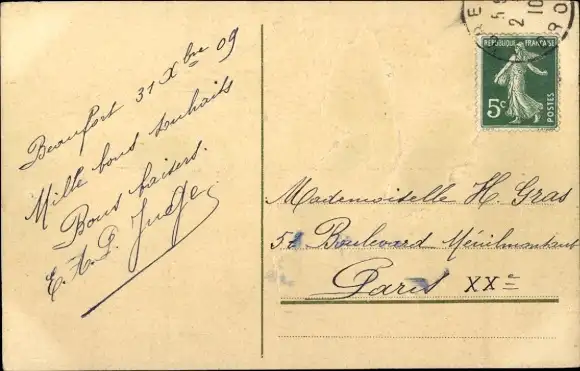 Beaufort 31 Xbre 09
Mille bons souhaits
Bons baisers.
E. A. L. Juge
RÉPUBLIQUE FRANÇAISE
5c
POSTES
Mademoiselle H. Gras
Boulevard Ménilmontant
Paris XXe